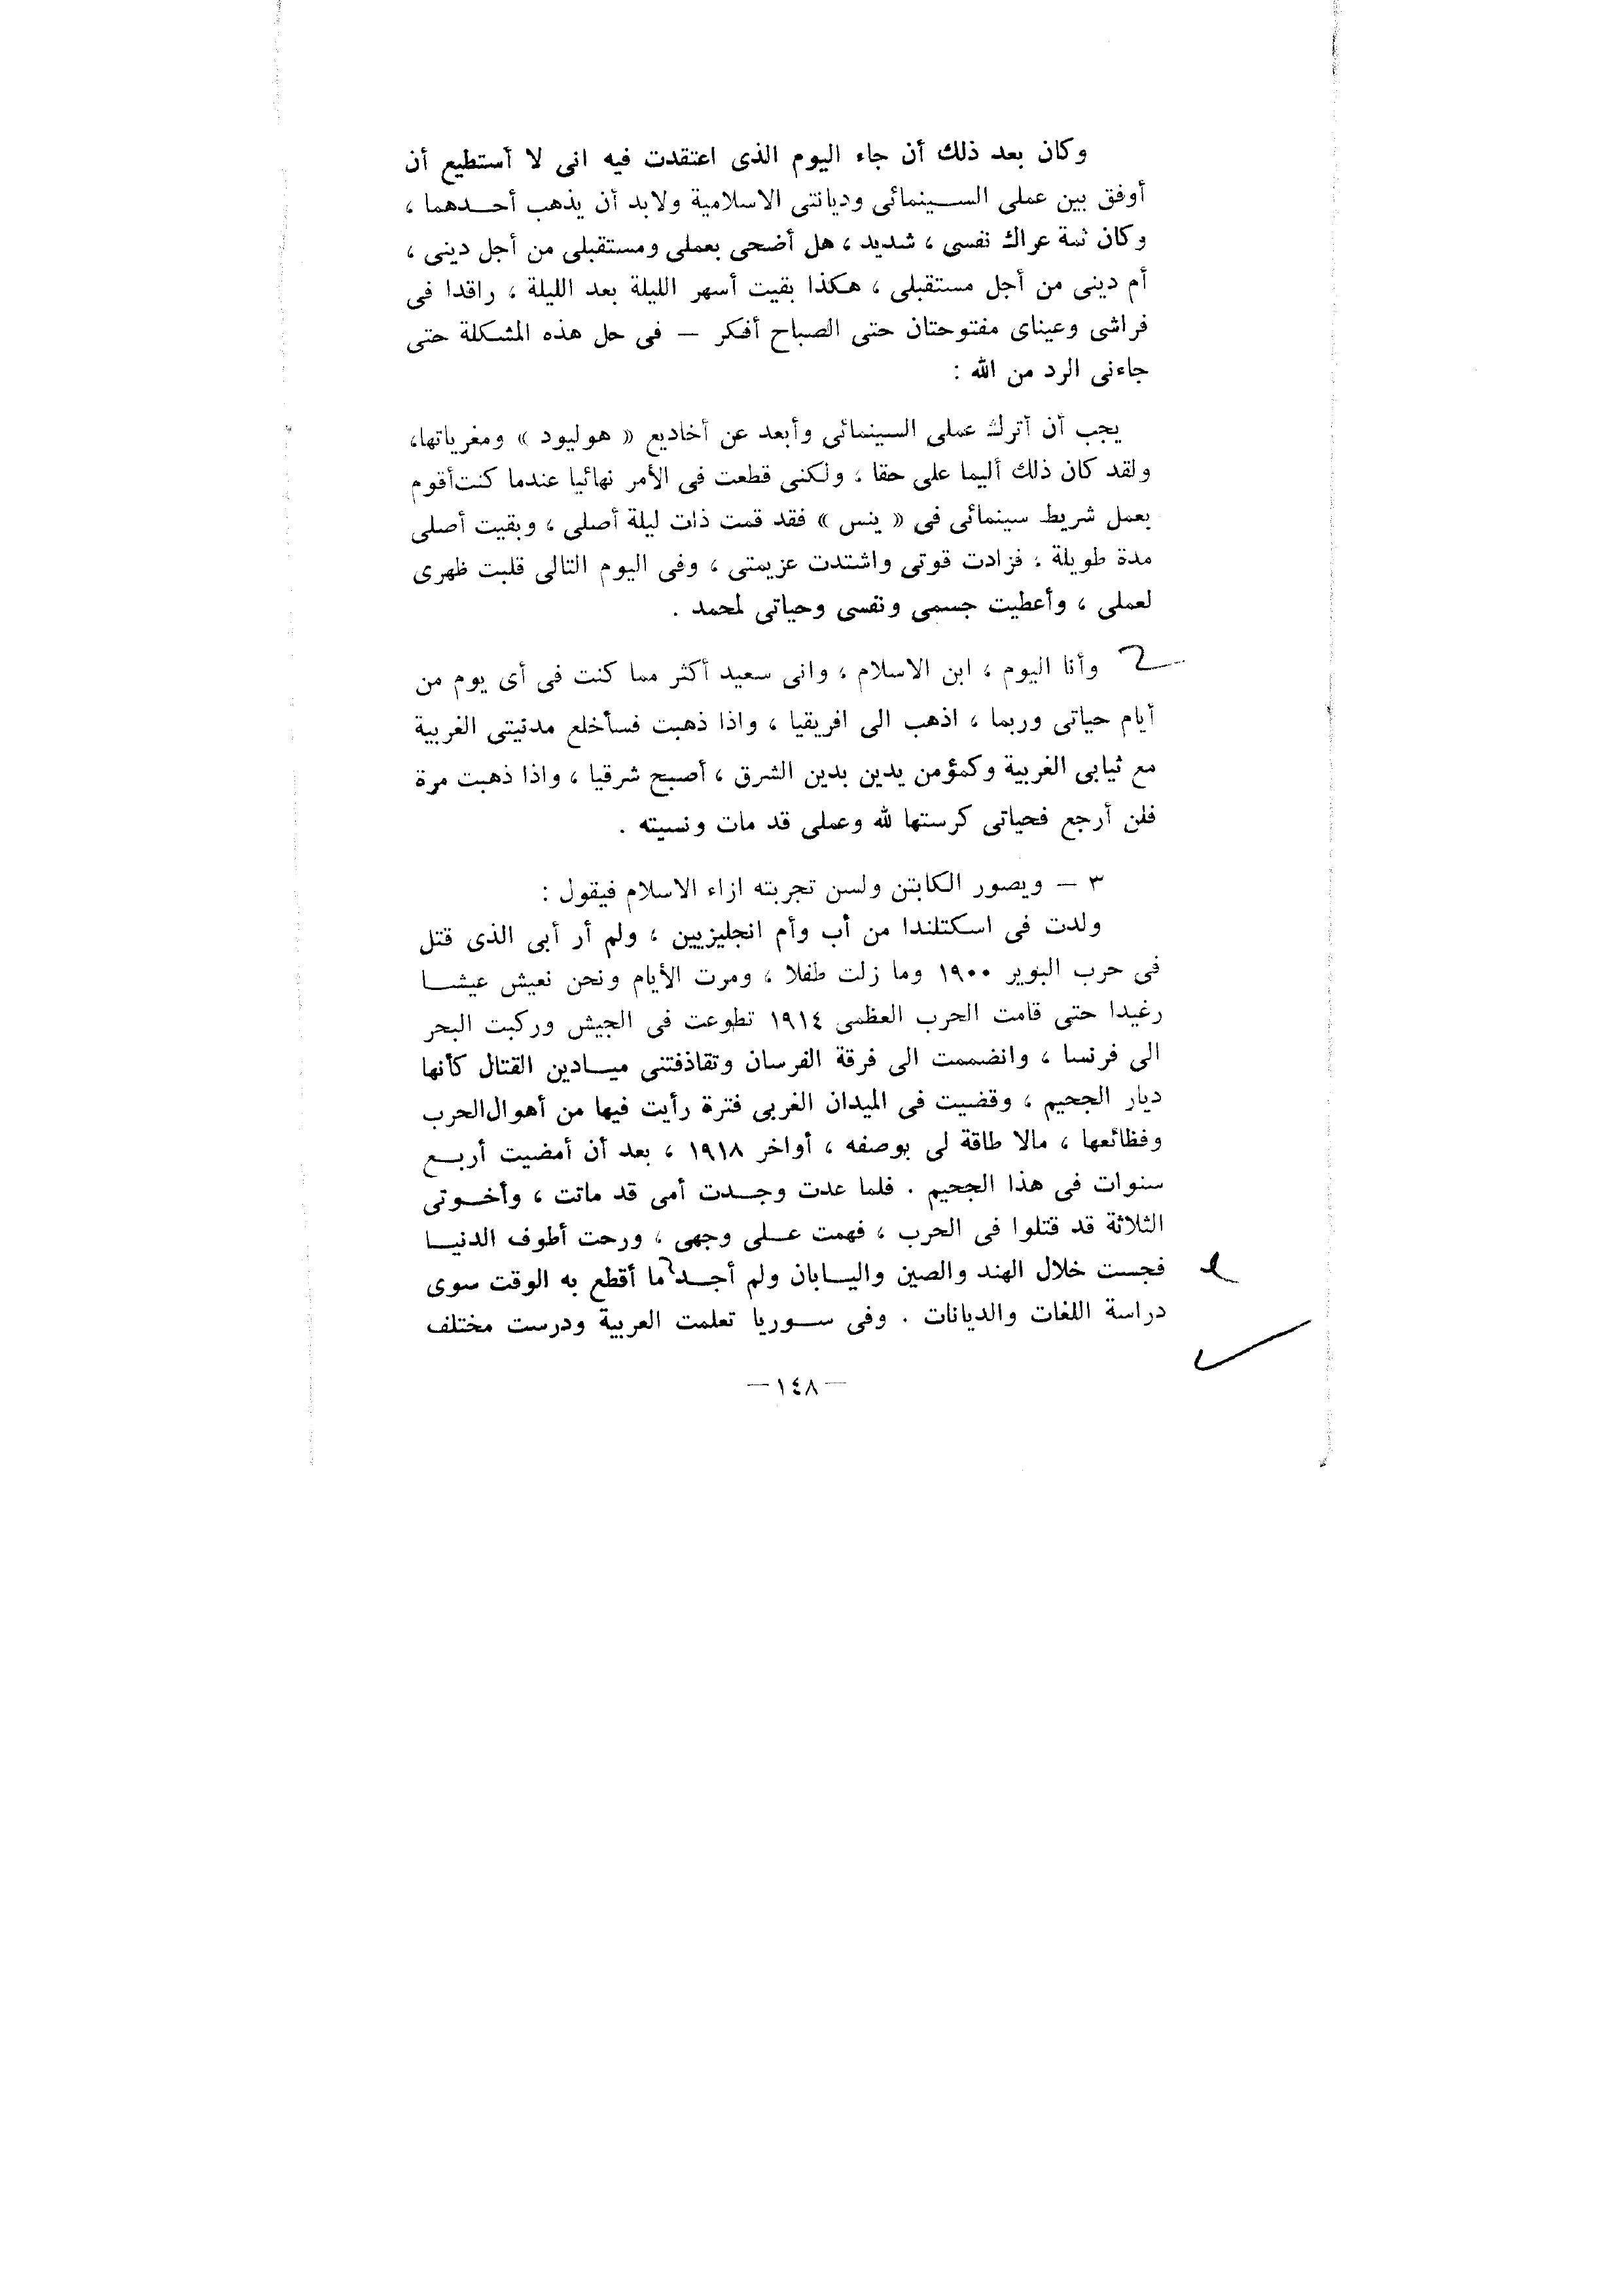 وكان بعد ذلك أن جاء اليوم الذى اعتقدت فيه انى لا أستطيع أن
أوفق بين عملى الســينمائى وديانتى الاسلامية ولابد أن يذهب أحــدهما ،
وكان ثمة عراك نفسى ، شديد ، هل أضحى بعملى ومستقبلى من أجل دينى ،
أم دينى من أجل مستقبلى ، هكذا بقيت أسهر الليلة بعد الليلة ، راقدا فى
فراشى وعيناى مفتوحتان حتى الصباح أفكر — فى حل هذه المشكلة حتى
جاءنى الرد من الله :
يجب أن أترك عملى السينمائى وأبعد عن أخاديع « هوليود » ومغرياتها،
ولقد كان ذلك أليما على حقا ، ولكنى قطعت فى الأمر نهائيا عندما كنت أقوم
بعمل شريط سينمائى فى « ينس » فقد قمت ذات ليلة أصلى ، وبقيت أصلى
مدة طويلة ، فزادت قوتى واشتدت عزيمتى ، وفى اليوم التالى قلبت ظهرى
لعملى ، وأعطيت جسمى ونفسى وحياتى لمحمد .
وأنا اليوم ، ابن الاسلام ، وانى سعيد أكثر مما كنت فى أى يوم من
أيام حياتى وربما ، اذهب الى افريقيا ، واذا ذهبت فسأخلع مدنيتى الغربية
مع ثيابى الغربية وكمؤمن يدين بدين الشرق ، أصبح شرقيا ، واذا ذهبت مرة
فلن أرجع فحياتى كرستها لله وعملى قد مات ونسيته .
٣ — ويصور الكابتن ولسن تجربته ازاء الاسلام فيقول :
ولدت فى اسكتلندا من أب وأم انجليزيين ، ولم أر أبى الذى قتل
فى حرب البوير ١٩٠٠ وما زلت طفلا ، ومرت الأيام ونحن نعيش عيشــا
رغيدا حتى قامت الحرب العظمى ١٩١٤ تطوعت فى الجيش وركبت البحر
الى فرنسا ، وانضممت الى فرقة الفرسان وتقاذفتنى ميــادين القتال كأنها
ديار الجحيم ، وقضيت فى الميدان الغربى فترة رأيت فيها من أهوال الحرب
وفظائعها ، مالا طاقة لى بوصفه ، أواخر ١٩١٨ ، بعد أن أمضيت أربــع
سنوات فى هذا الجحيم . فلما عدت وجــدت أمى قد ماتت ، وأخــوتى
الثلاثة قد قتلوا فى الحرب ، فهمت عــلى وجهى ، ورحت أطوف الدنيــا
فجست خلال الهند والصين واليــابان ولم أجــد ما أقطع به الوقت سوى
دراسة اللغات والديانات . وفى ســوريا تعلمت العربية ودرست مختلف
— ١٤٨ —